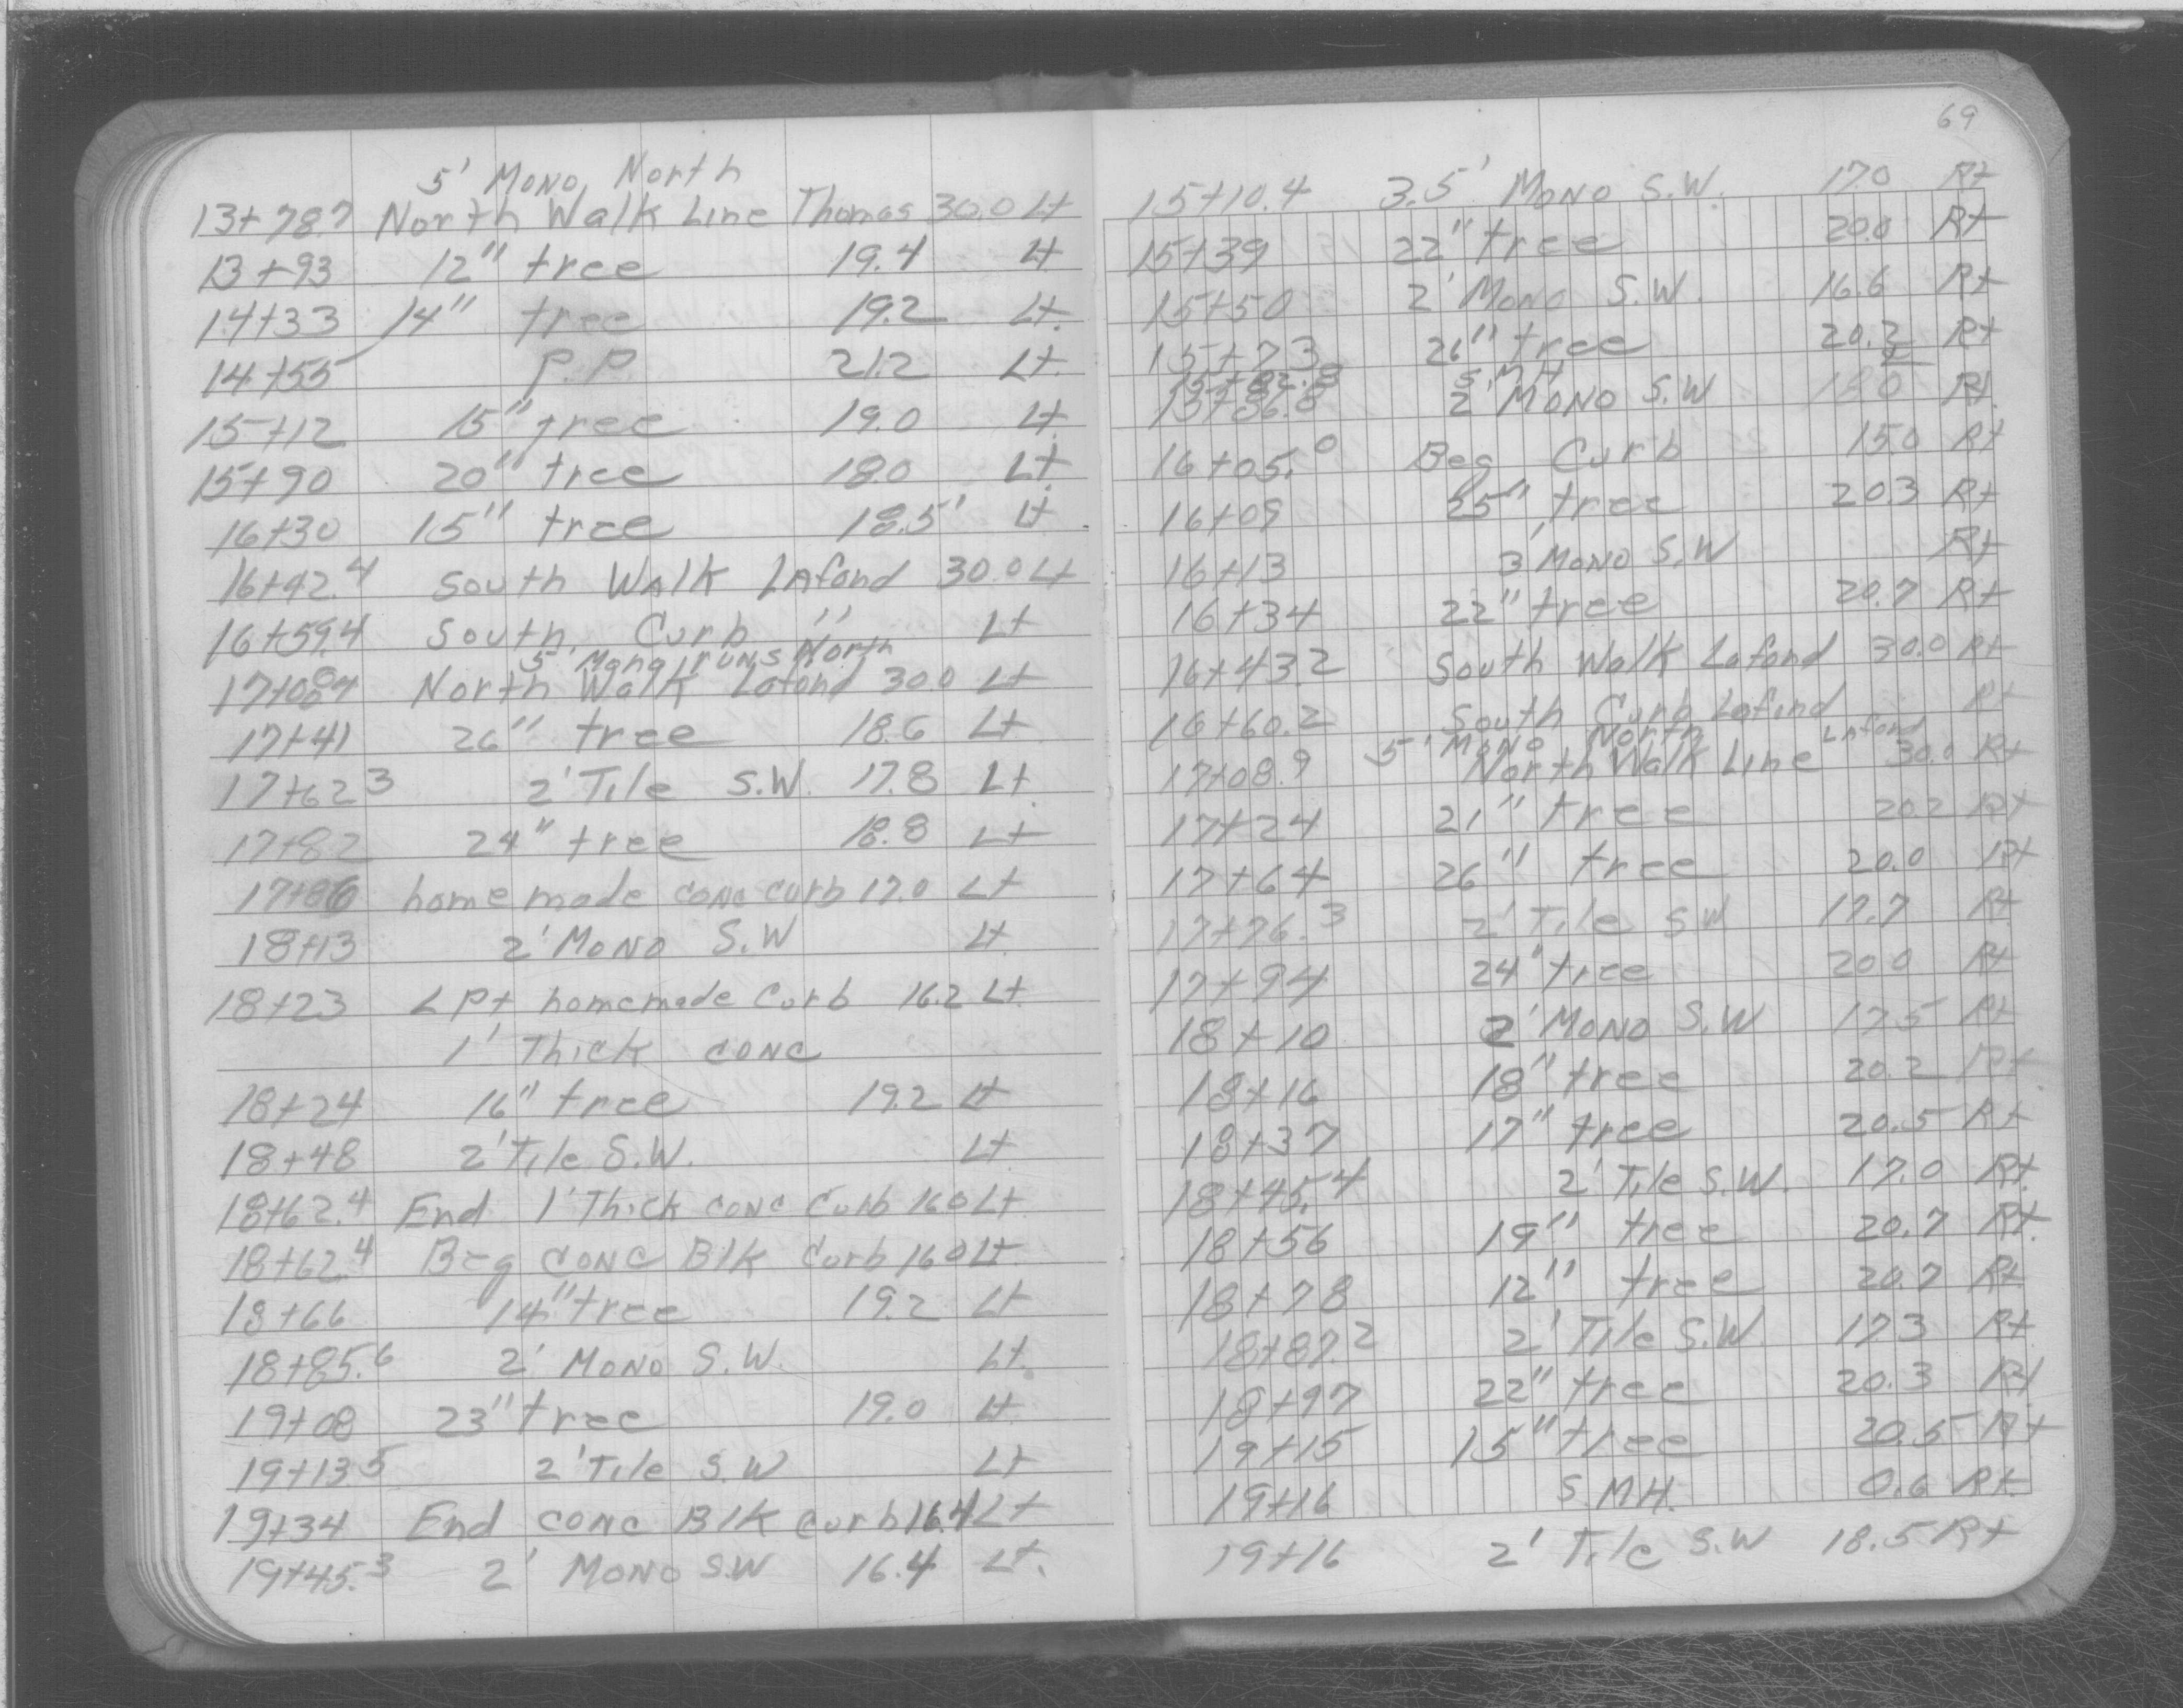 5' Mono North
13+78.7 North Walk Line Thomas 30.0 Lt
13+93 12" tree 19.4 Lt
14+33 14" tree 19.2 Lt.
14+55 P.P. 21.2 Lt.
15+12 15" tree 19.0 Lt.
15+90 20" tree 18.0 Lt.
16+30 15" tree 18.5' Lt.
16+42.4 South Walk Lafond 30.0 Lt
16+59.4 South Curb " Lt
5' Mono runs North
North Walk Lafond 30.0 Lt
17+41 26" tree 18.6 Lt
17+62.3 2' Tile S.W. 17.8 Lt.
17+82 24" tree 18.8 Lt
17+86 homemade conc curb 17.0 Lt
18+13 2' Mono S.W Lt.
18+23 L Pt homemade Curb 16.2 Lt.
1' Thick conc
18+24 16" tree 19.2 Lt
18+48 2' Tile S.W. Lt.
18+62.4 End 1' Thick conc Curb 16.0 Lt.
18+62.4 Beg conc Blk Curb 16.0 Lt.
18+66 14" tree 19.2 Lt
18+85.6 2' Mono S.W. Lt.
19+08 23" tree 19.0 Lt.
19+13.5 2' Tile S.W Lt
19+34 End conc Blk curb 16.4 Lt
19+45.3 2' Mono S.W 16.4 Lt.
69
15+10.4 3.5' Mono S.W. 17.0 Rt
15+39 22" tree 20.0 Rt
15+50 2' Mono S.W. 16.6 Rt
15+73 26" tree 20.2 Rt
15+82.8 S.MH
2' Mono S.W 18.0 Rt.
16+05.0 Beg Curb 15.0 Rt
16+09 25" tree 20.3 Rt
16+13 3' Mono S.W Rt
16+34 22" tree 20.7 Rt
16+43.2 South Walk Lafond 30.0 Rt
16+60.2 South Curb Lafond Rt
5' Mono North Lafond
17+08.9 North Walk Line 30.0 Rt
17+24 21" tree 20.2 Rt
17+64 26" tree 20.0 Rt
17+76.3 2' Tile SW 17.7 Rt
17+94 24" tree 20.0 Rt
18+10 2' Mono S.W 17.5 Rt
18+16 18" tree 20.2 Rt
18+37 17" tree 20.5 Rt
18+45.4 2' Tile S.W. 17.0 Rt.
18+56 19" tree 20.7 Rt.
18+78 12" tree 20.7 Rt
18+87.2 2' Tile S.W. 17.3 Rt
18+97 22" tree 20.3 Rt
19+15 15" tree 20.5 Rt
19+16 S.MH. 0.6 Rt.
19+16 2' Tile S.W 18.5 Rt